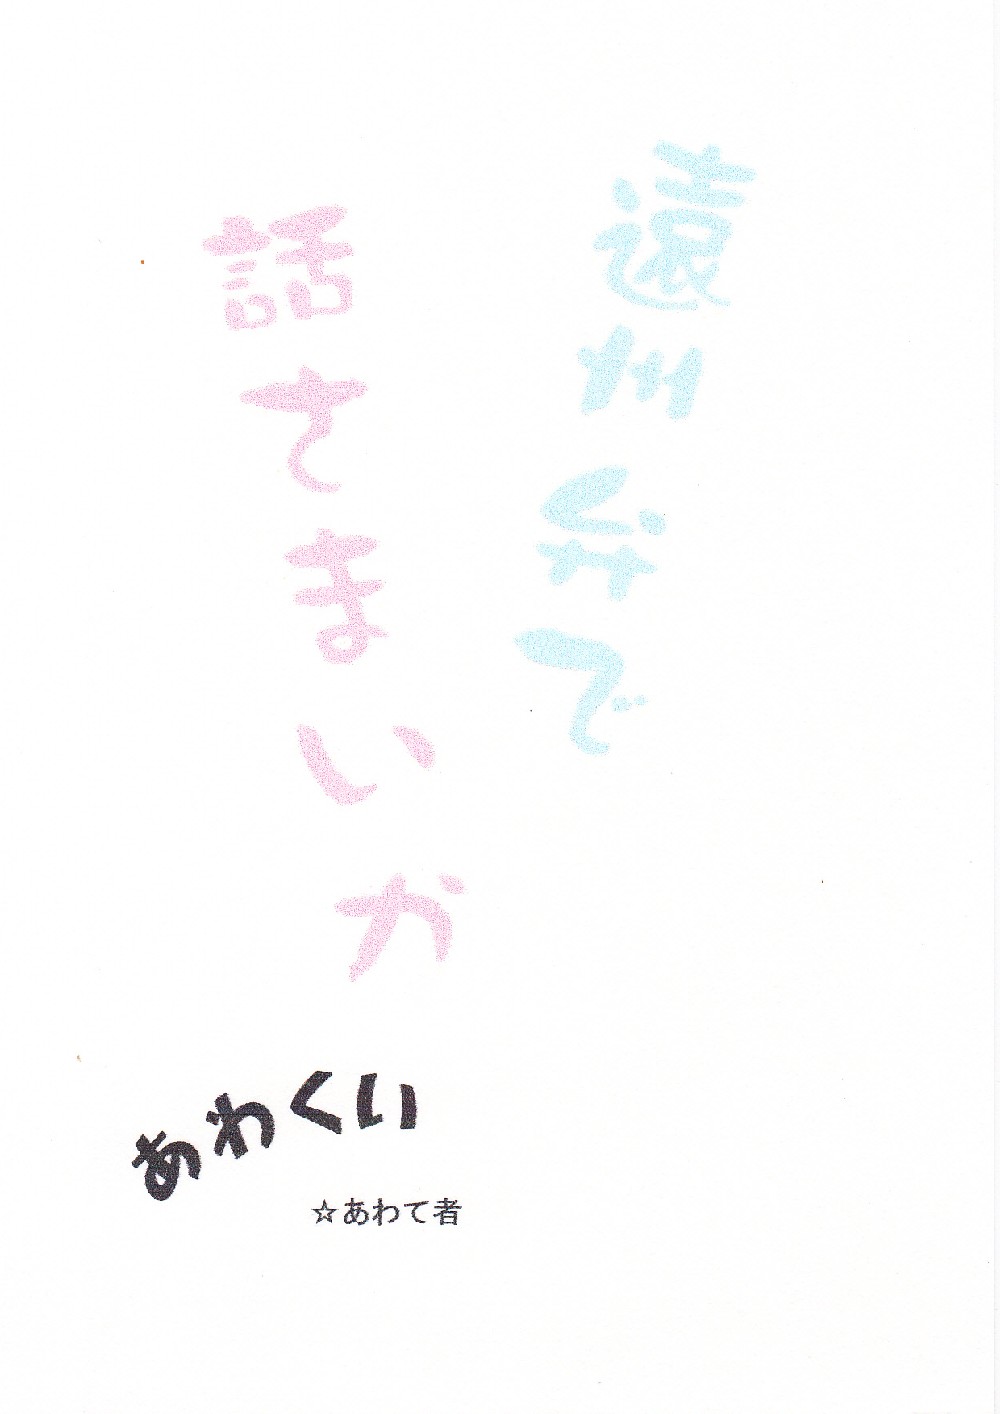 遠州弁で
話さまいか
あわくい
☆あわて者